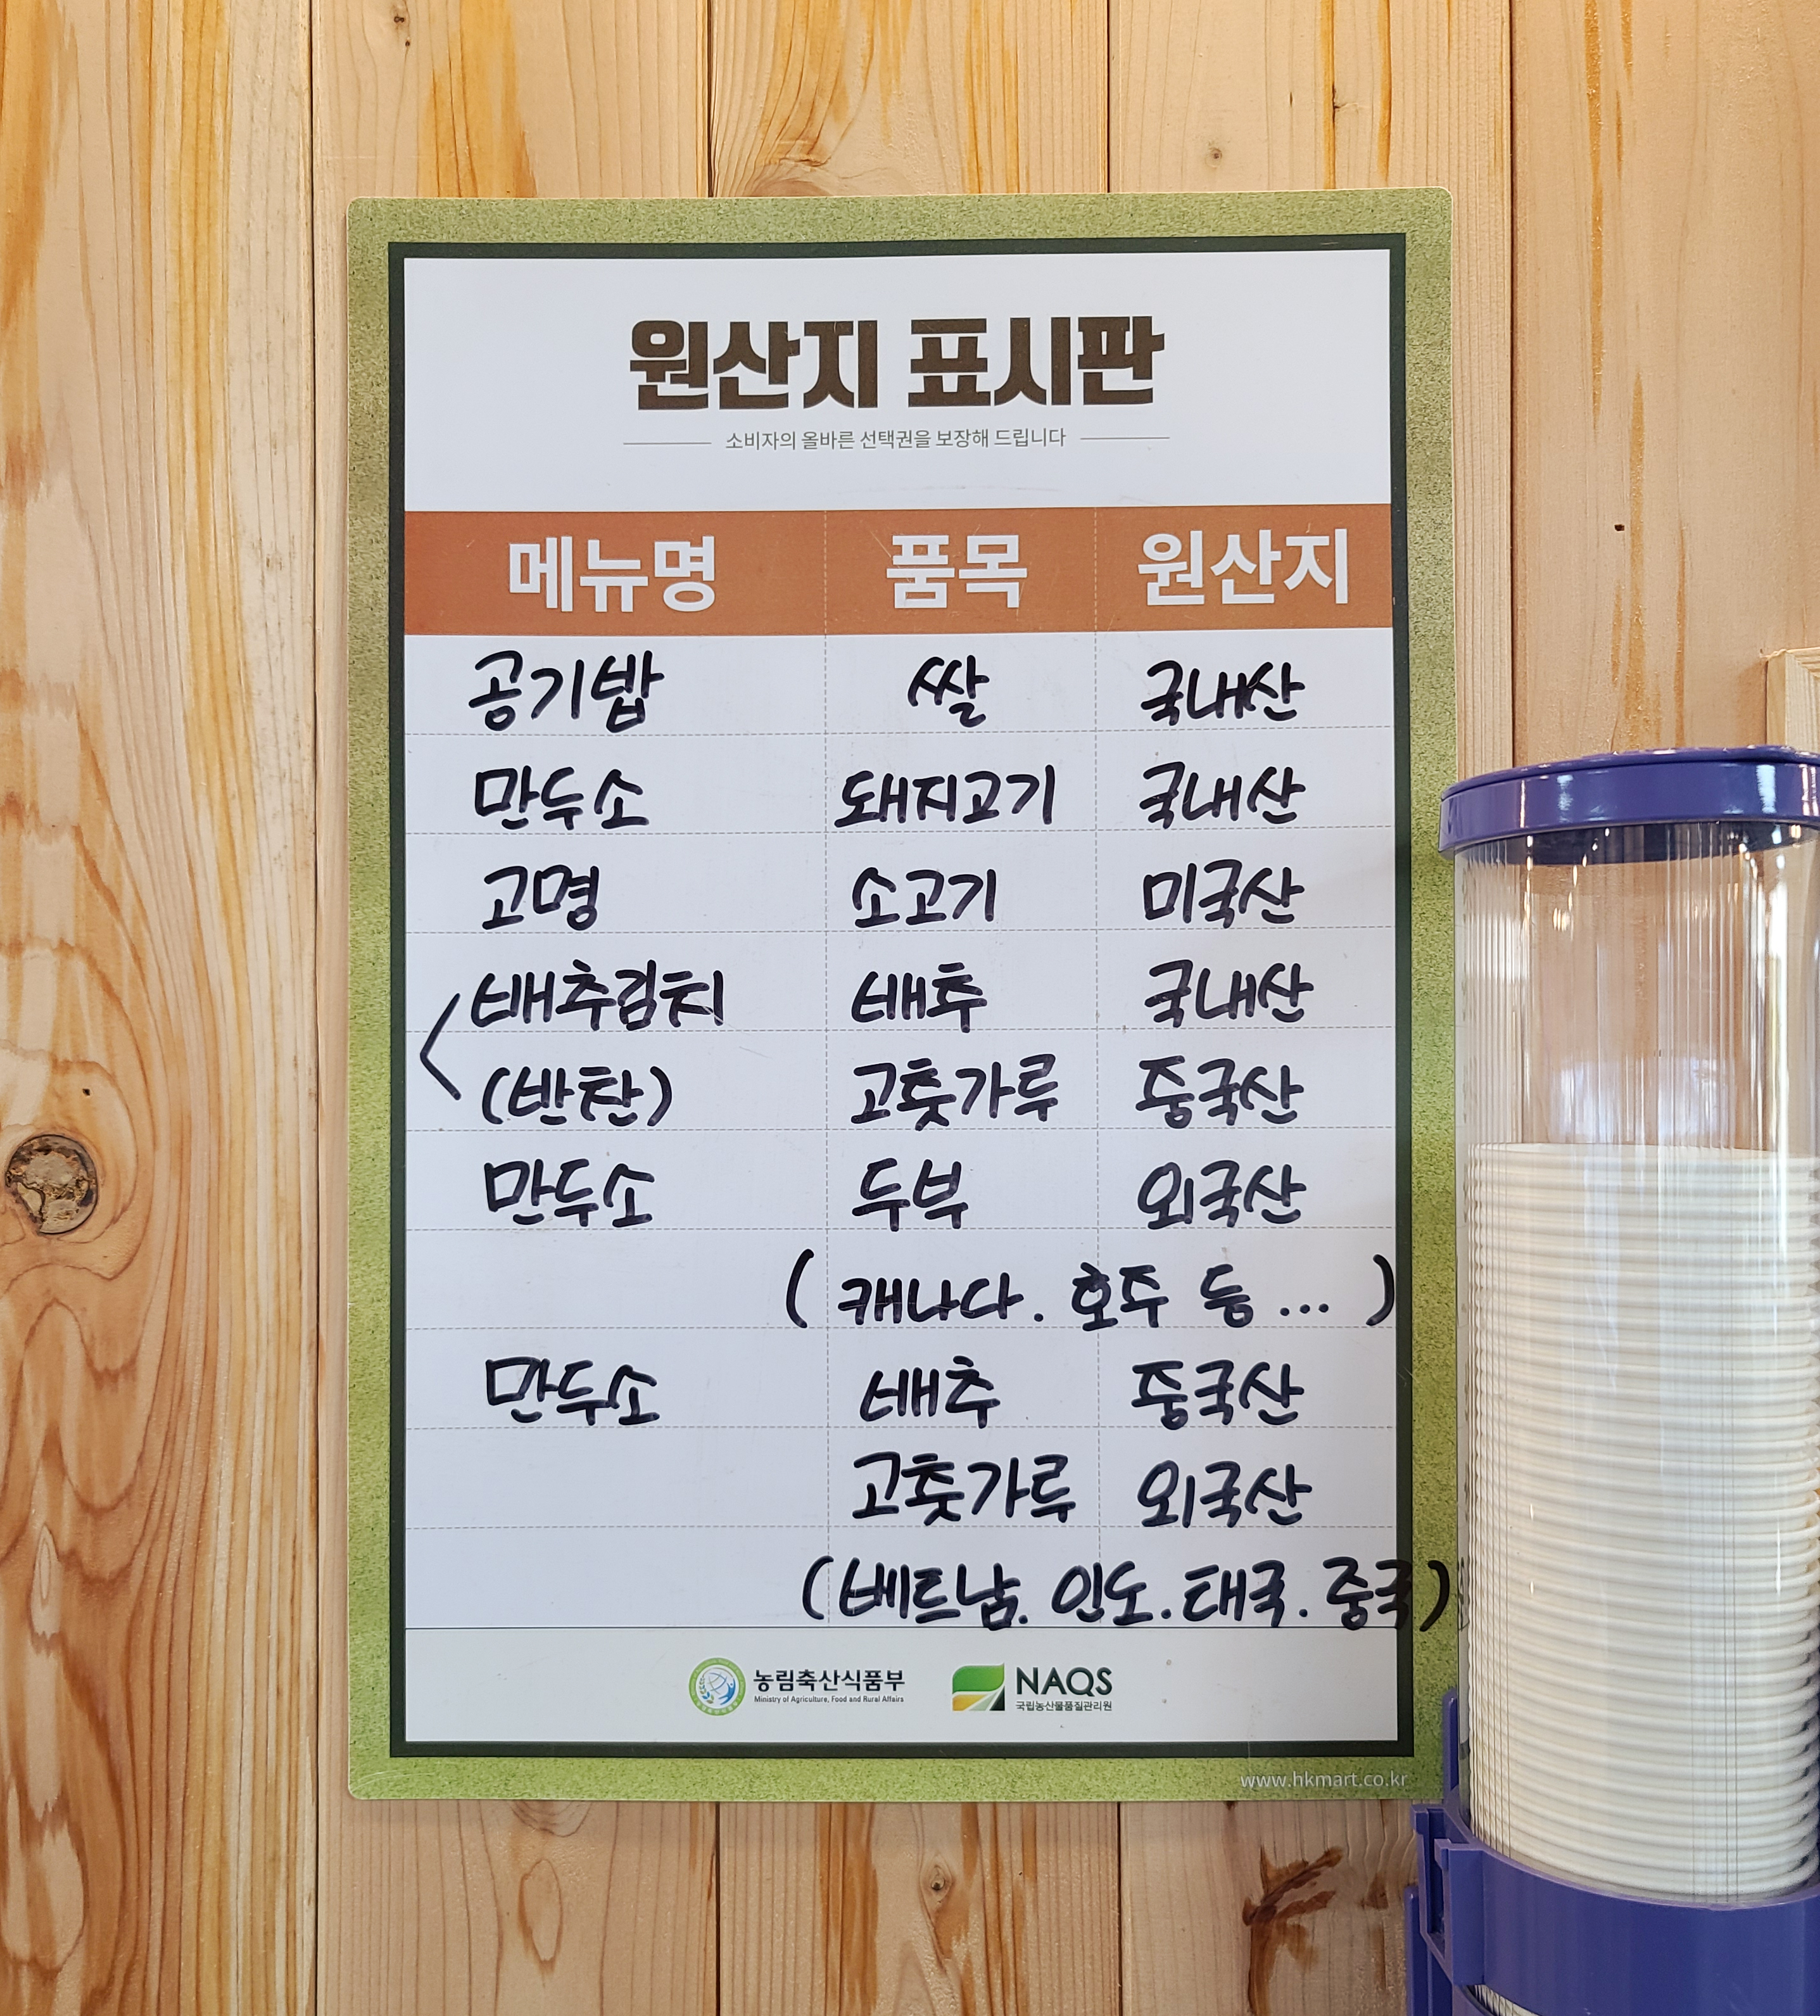 원산지 표시판
소비자의 올바른 선택권을 보장해 드립니다
메뉴명 품목 원산지
공기밥 쌀 국내산
만두소 돼지고기 국내산
고명 소고기 미국산
배추김치 배추 국내산
(반찬) 고춧가루 중국산
만두소 두부 외국산
( 캐나다. 호주 등 ... )
만두소 배추 중국산
고춧가루 외국산
(베트남. 인도. 태국. 중국)
농림축산식품부 NAQS
Ministry of Agriculture, Food and Rural Affairs 국립농산물품질관리원
www.hkmart.co.kr